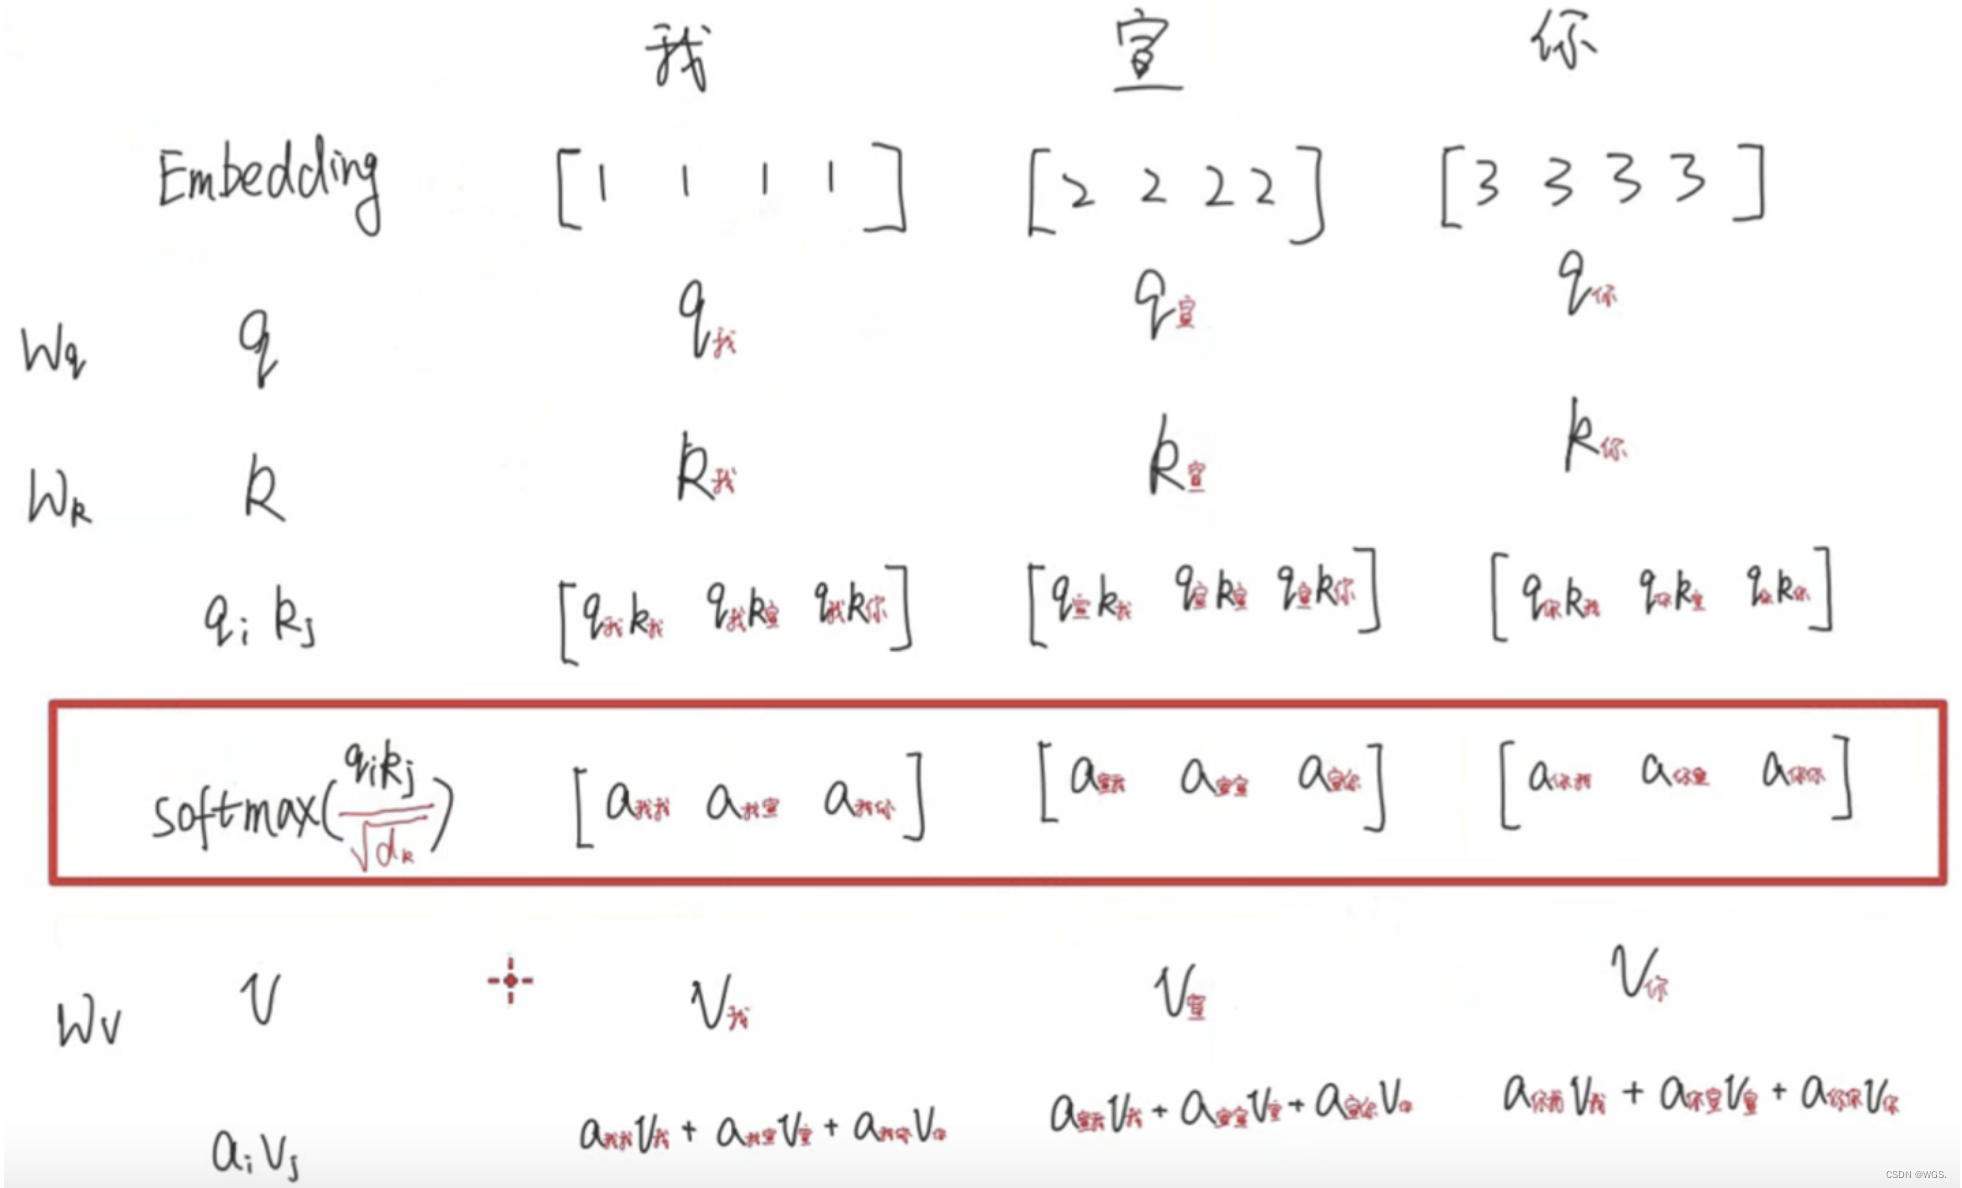 我 宣 你
Embedding [1 1 1 1] [2 2 2 2] [3 3 3 3]
Wq q q我 q宣 q你
Wk k k我 k宣 k你
qi kj [q我k我 q我k宣 q我k你] [q宣k我 q宣k宣 q宣k你] [q你k我 q你k宣 q你k你]
softmax(qikj/√dk) [a我我 a我宣 a我你] [a宣我 a宣宣 a宣你] [a你我 a你宣 a你你]
Wv v v我 v宣 v你
aivj a我我v我 + a我宣v宣 + a我你v你 a宣我v我 + a宣宣v宣 + a宣你v你 a你我v我 + a你宣v宣 + a你你v你
CSDN @WGS.